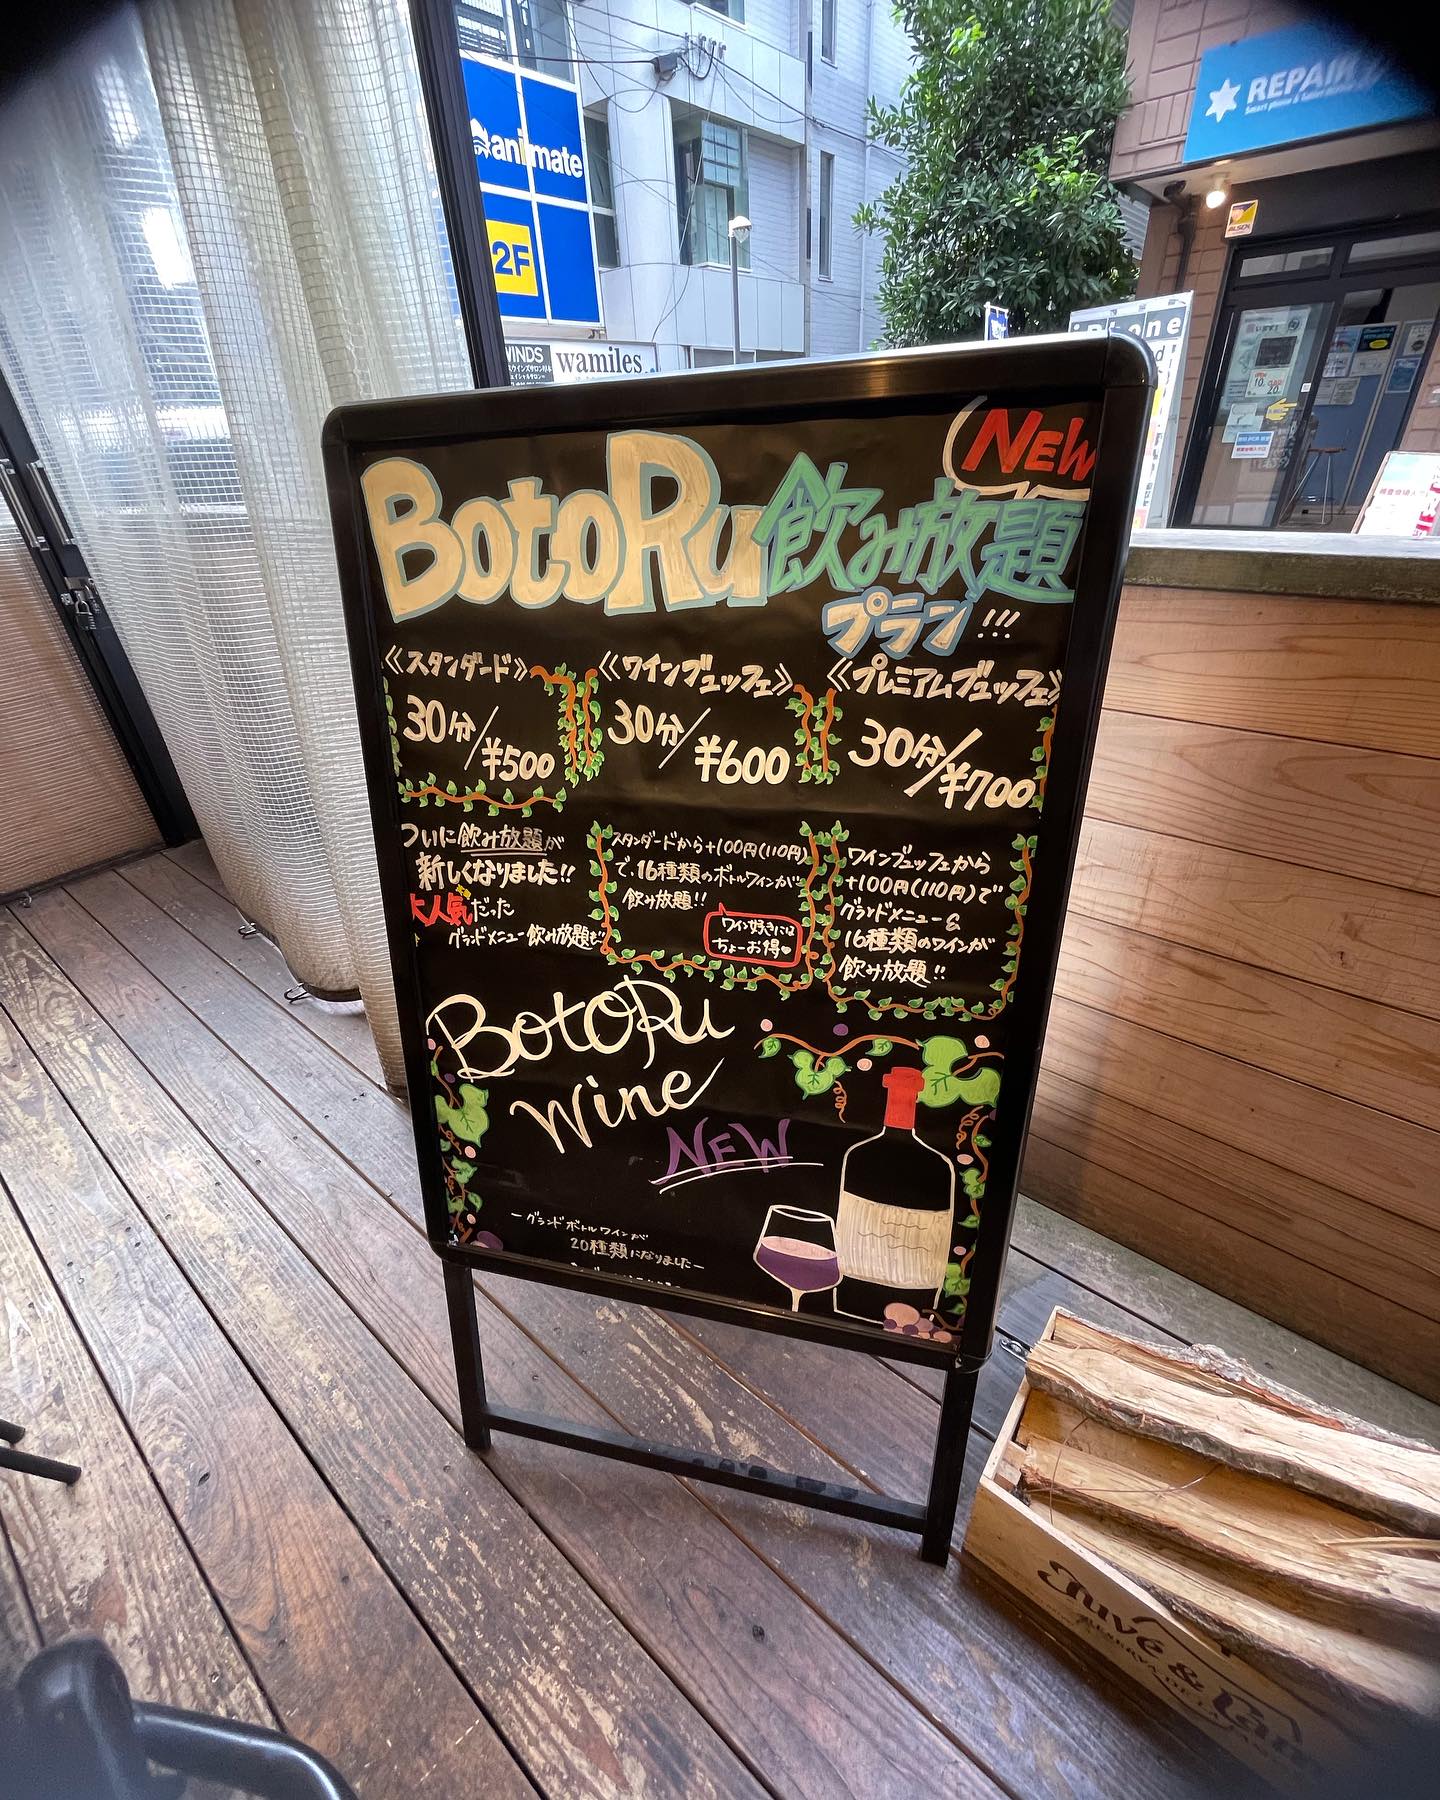 animate
2F
WINDS
wamiles
REPAIR
Smart phone & Tablet
iPhone
NEW
BotoRu飲み放題
プラン!!!
《スタンダード》
30分/¥500
ついに飲み放題が
新しくなりました!!
大人気だった
グランドメニュー飲み放題も
《ワインブュッフェ》
30分/¥600
スタンダードから+100円(110円)
で、16種類のボトルワインが
飲み放題!!
ワイン好きには
ちょーお得
《プレミアムブュッフェ》
30分/¥700
ワインブュッフェから
+100円(110円)で
グランドメニュー&
16種類のワインが
飲み放題!!
BotoRu
Wine
NEW
ーグランドボトルワインが
20種類になりましたー
Juvé &